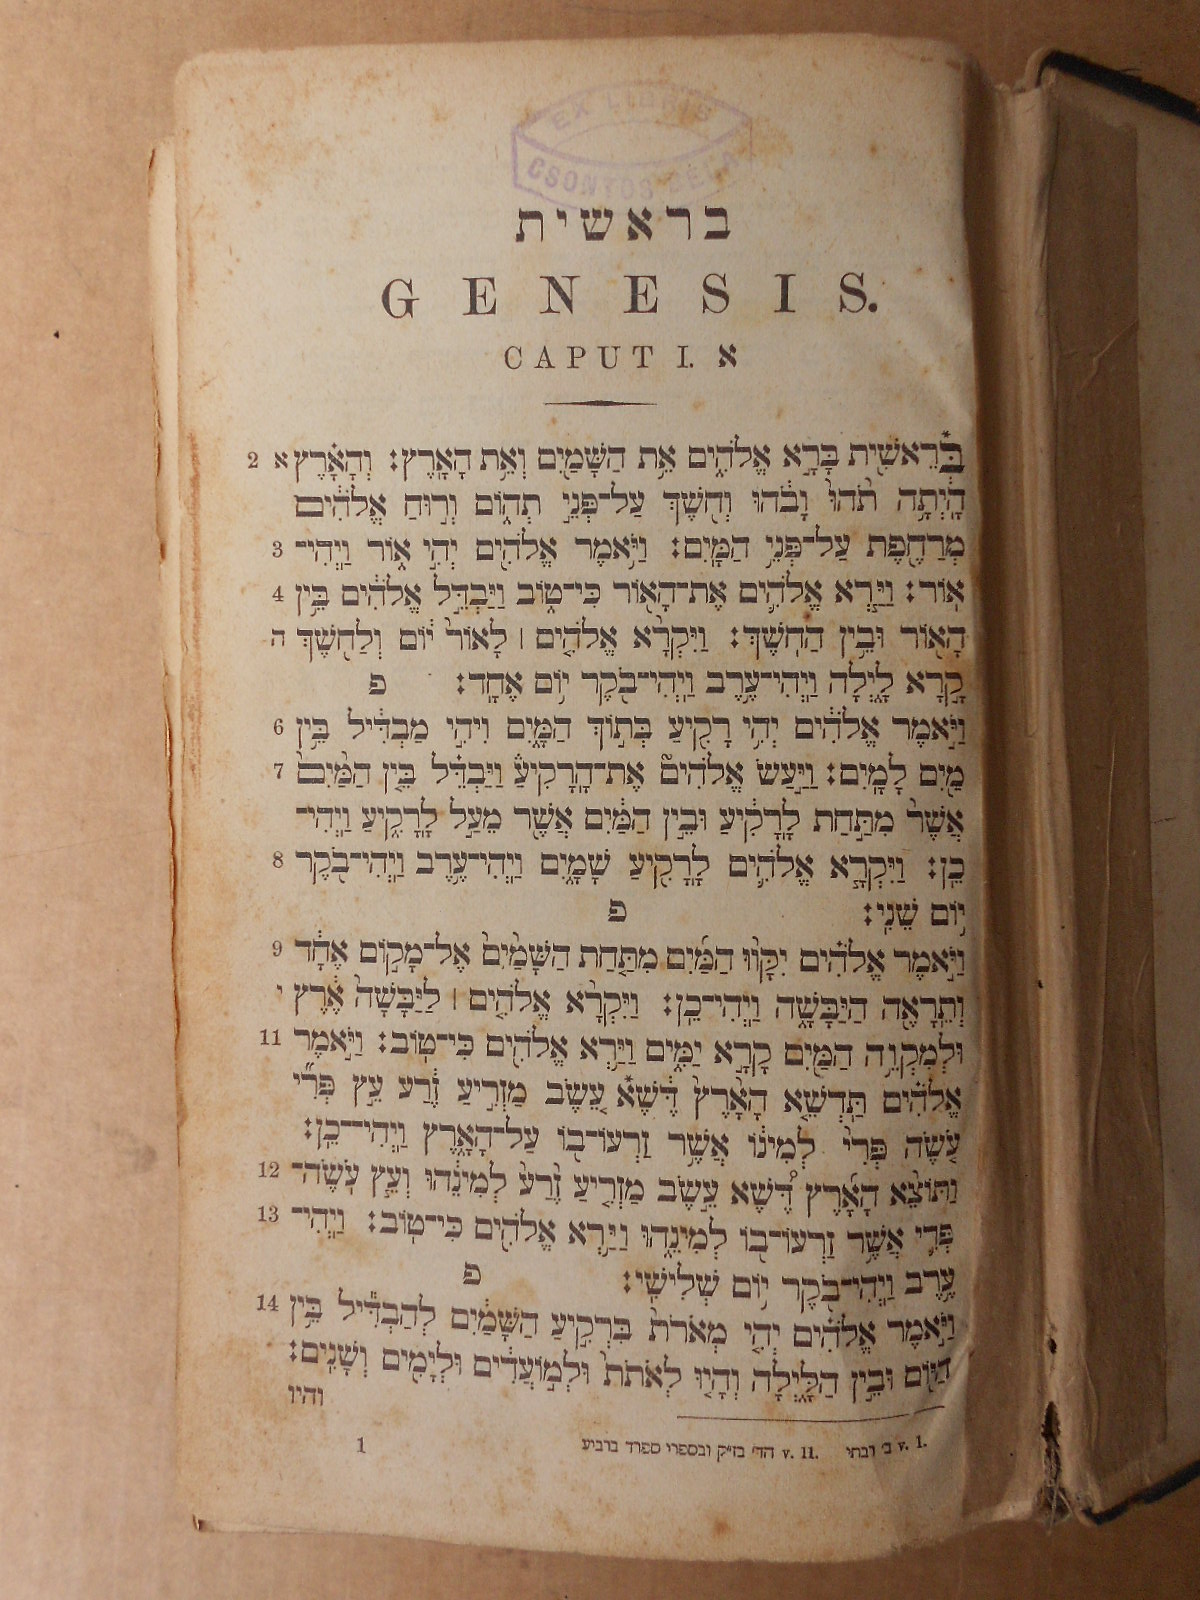 EX LIBRIS
CSONTOS BÉLA
בראשית
GENESIS.
CAPUT I. א
בְּרֵאשִׁ֖ית בָּרָ֣א אֱלֹהִ֑ים אֵ֥ת הַשָּׁמַ֖יִם וְאֵ֥ת הָאָֽרֶץ׃ וְהָאָ֗רֶץ א 2
הָיְתָ֥ה תֹ֙הוּ֙ וָבֹ֔הוּ וְחֹ֖שֶׁךְ עַל־פְּנֵ֣י תְה֑וֹם וְר֣וּחַ אֱלֹהִ֔ים
מְרַחֶ֖פֶת עַל־פְּנֵ֥י הַמָּֽיִם׃ וַיֹּ֥אמֶר אֱלֹהִ֖ים יְהִ֣י א֑וֹר וַֽיְהִי־ 3
אֽוֹר׃ וַיַּ֧רְא אֱלֹהִ֛ים אֶת־הָא֖וֹר כִּי־ט֑וֹב וַיַּבְדֵּ֣ל אֱלֹהִ֔ים בֵּ֥ין 4
הָא֖וֹר וּבֵ֥ין הַחֹֽשֶׁךְ׃ וַיִּקְרָ֨א אֱלֹהִ֤ים ׀ לָאוֹר֙ י֔וֹם וְלַחֹ֖שֶׁךְ ה
קָ֣רָא לָ֑יְלָה וַֽיְהִי־עֶ֥רֶב וַֽיְהִי־בֹ֖קֶר י֥וֹם אֶחָֽד׃ פ
וַיֹּ֣אמֶר אֱלֹהִ֔ים יְהִ֥י רָקִ֖יעַ בְּת֣וֹךְ הַמָּ֑יִם וִיהִ֣י מַבְדִּ֔יל בֵּ֥ין 6
מַ֖יִם לָמָֽיִם׃ וַיַּ֣עַשׂ אֱלֹהִים֮ אֶת־הָרָקִיעַ֒ וַיַּבְדֵּ֗ל בֵּ֤ין הַמַּ֙יִם֙ 7
אֲשֶׁר֙ מִתַּ֣חַת לָרָקִ֔יעַ וּבֵ֣ין הַמַּ֔יִם אֲשֶׁ֖ר מֵעַ֣ל לָרָקִ֑יעַ וַֽיְהִי־
כֵֽן׃ וַיִּקְרָ֧א אֱלֹהִ֛ים לָֽרָקִ֖יעַ שָׁמָ֑יִם וַֽיְהִי־עֶ֥רֶב וַֽיְהִי־בֹ֖קֶר 8
י֥וֹם שֵׁנִֽי׃ פ
וַיֹּ֣אמֶר אֱלֹהִ֗ים יִקָּו֨וּ הַמַּ֜יִם מִתַּ֤חַת הַשָּׁמַ֙יִם֙ אֶל־מָק֣וֹם אֶחָ֔ד 9
וְתֵרָאֶ֖ה הַיַּבָּשָׁ֑ה וַֽיְהִי־כֵֽן׃ וַיִּקְרָ֨א אֱלֹהִ֤ים ׀ לַיַּבָּשָׁה֙ אֶ֔רֶץ י
וּלְמִקְוֵ֥ה הַמַּ֖יִם קָרָ֣א יַמִּ֑ים וַיַּ֥רְא אֱלֹהִ֖ים כִּי־טֽוֹב׃ וַיֹּ֣אמֶר 11
אֱלֹהִ֗ים תַּֽדְשֵׁ֤א הָאָ֙רֶץ֙ דֶּ֔שֶׁא עֵ֚שֶׂב מַזְרִ֣יעַ זֶ֔רַע עֵ֣ץ פְּרִ֞י
עֹ֤שֶׂה פְּרִי֙ לְמִינ֔וֹ אֲשֶׁ֥ר זַרְעוֹ־ב֖וֹ עַל־הָאָ֑רֶץ וַֽיְהִי־כֵֽן׃
וַתּוֹצֵ֨א הָאָ֜רֶץ דֶּ֠שֶׁא עֵ֣שֶׂב מַזְרִ֤יעַ זֶ֙רַע֙ לְמִינֵ֔הוּ וְעֵ֧ץ עֹֽשֶׂה־ 12
פְּרִ֛י אֲשֶׁ֥ר זַרְעוֹ־ב֖וֹ לְמִינֵ֑הוּ וַיַּ֥רְא אֱלֹהִ֖ים כִּי־טֽוֹב׃ וַֽיְהִי־ 13
עֶ֥רֶב וַֽיְהִי־בֹ֖קֶר י֥וֹם שְׁלִישִֽׁי׃ פ
וַיֹּ֣אמֶר אֱלֹהִ֗ים יְהִ֤י מְאֹרֹת֙ בִּרְקִ֣יעַ הַשָּׁמַ֔יִם לְהַבְדִּ֕יל בֵּ֥ין 14
הַיּ֖וֹם וּבֵ֣ין הַלָּ֑יְלָה וְהָי֤וּ לְאֹתֹת֙ וּלְמ֣וֹעֲדִ֔ים וּלְיָמִ֖ים וְשָׁנִֽים׃
והיו
v. 1. ב׳ רבתי v. 11. הד׳ בז״ק ובספרי ספרד ברביע
1